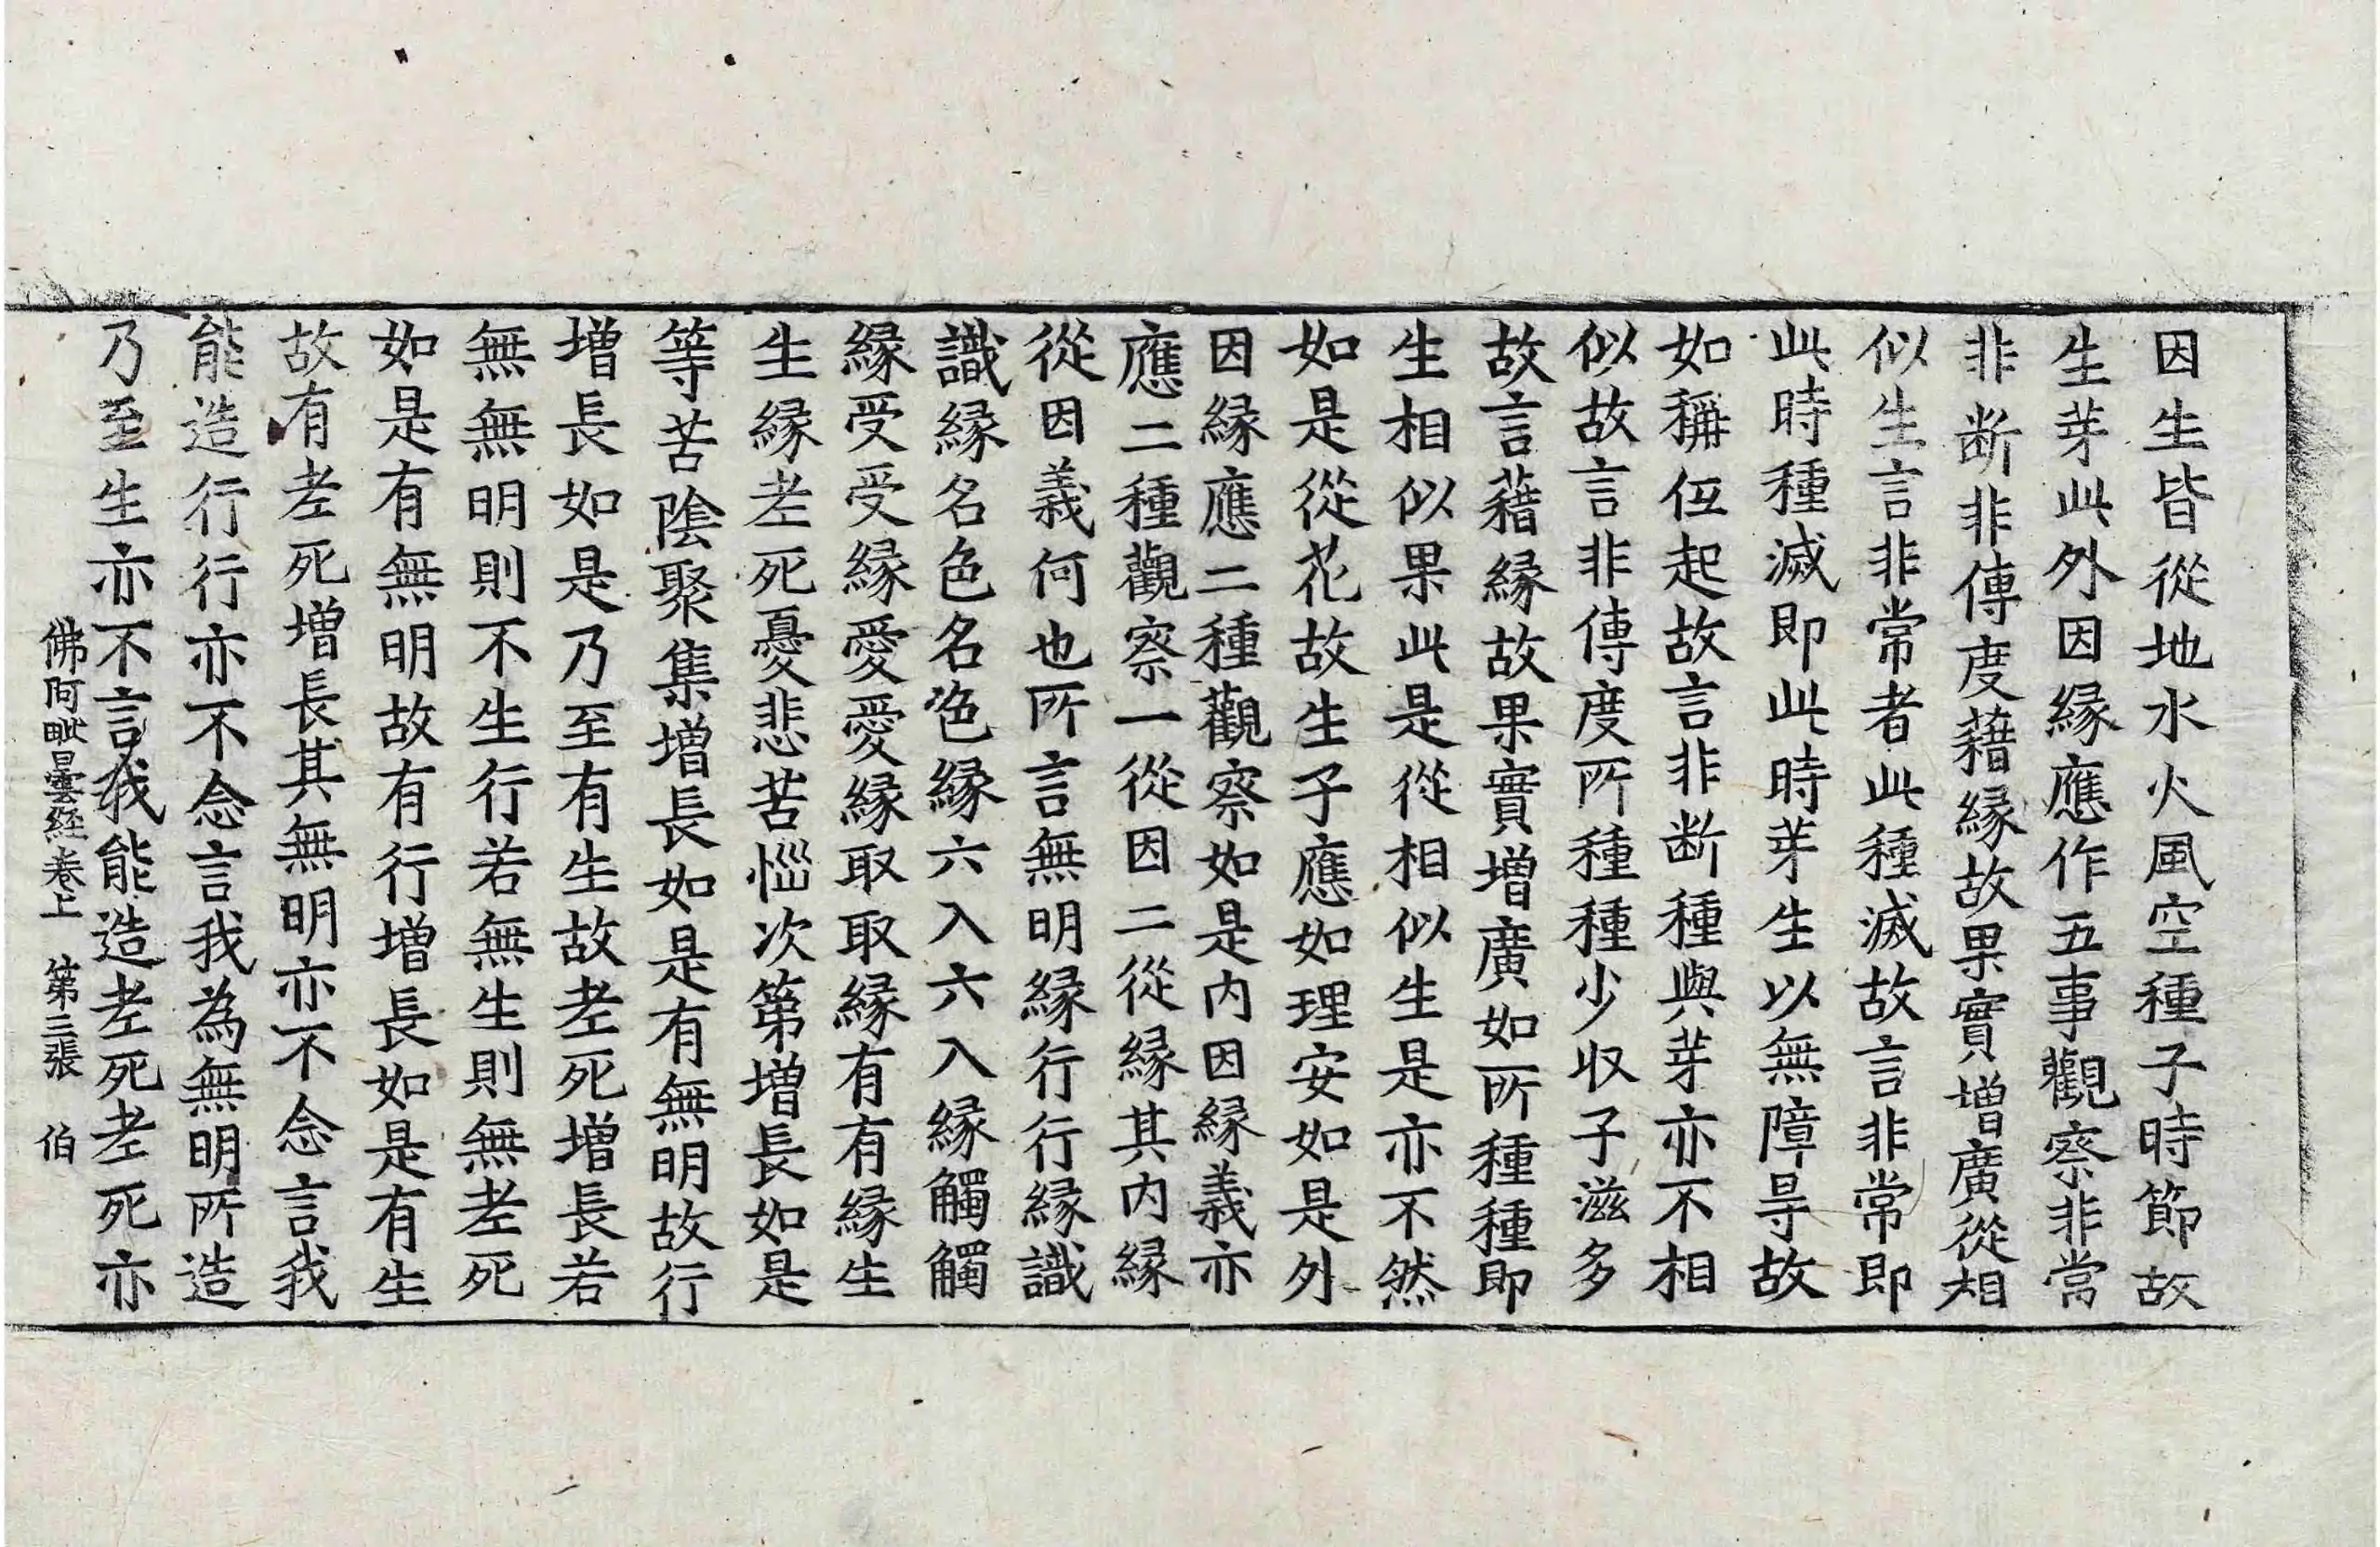 因生皆從地水火風空種子時節故
生芽此外因縁應作五事觀察非常
非断非傳度藉縁故果實增廣從相
似生言非常者此種滅故言非常即
此時種滅即此時芽生以無障㝵故
如稱伍起故言非断種與芽亦不相
似故言非傳度所種種少収子滋多
故言藉縁故果實增廣如所種種即
生相似果此是從相似生是亦不然
如是從花故生子應如理安如是外
因縁應二種觀察如是内因縁義亦
應二種觀察一從因二從縁其内縁
從因義何也所言無明縁行行縁識
識縁名色名色縁六入六入縁觸觸
縁受受縁愛愛縁取取縁有有縁生
生縁老死憂悲苦惱次第增長如是
等苦陰聚集增長如是有無明故行
增長如是乃至有生故老死增長若
無無明則不生行若無生則無老死
如是有無明故有行增長如是有生
故有老死增長其無明亦不念言我
能造行行亦不念言我為無明所造
乃至生亦不言我能造老死老死亦
佛阿毗曇経卷上　第三張　伯